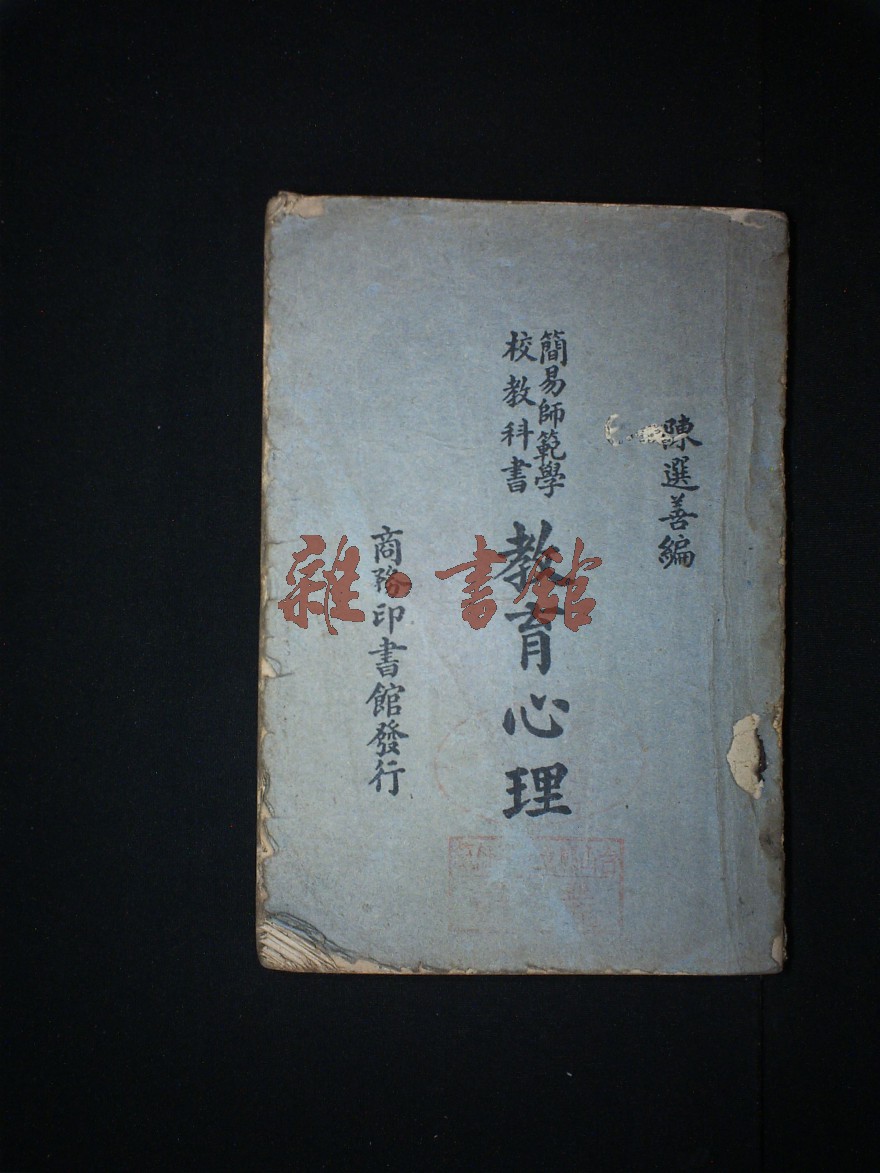 陳選善編
簡易師範學
校教科書
教育心理
商務印書館發行
雜·書館